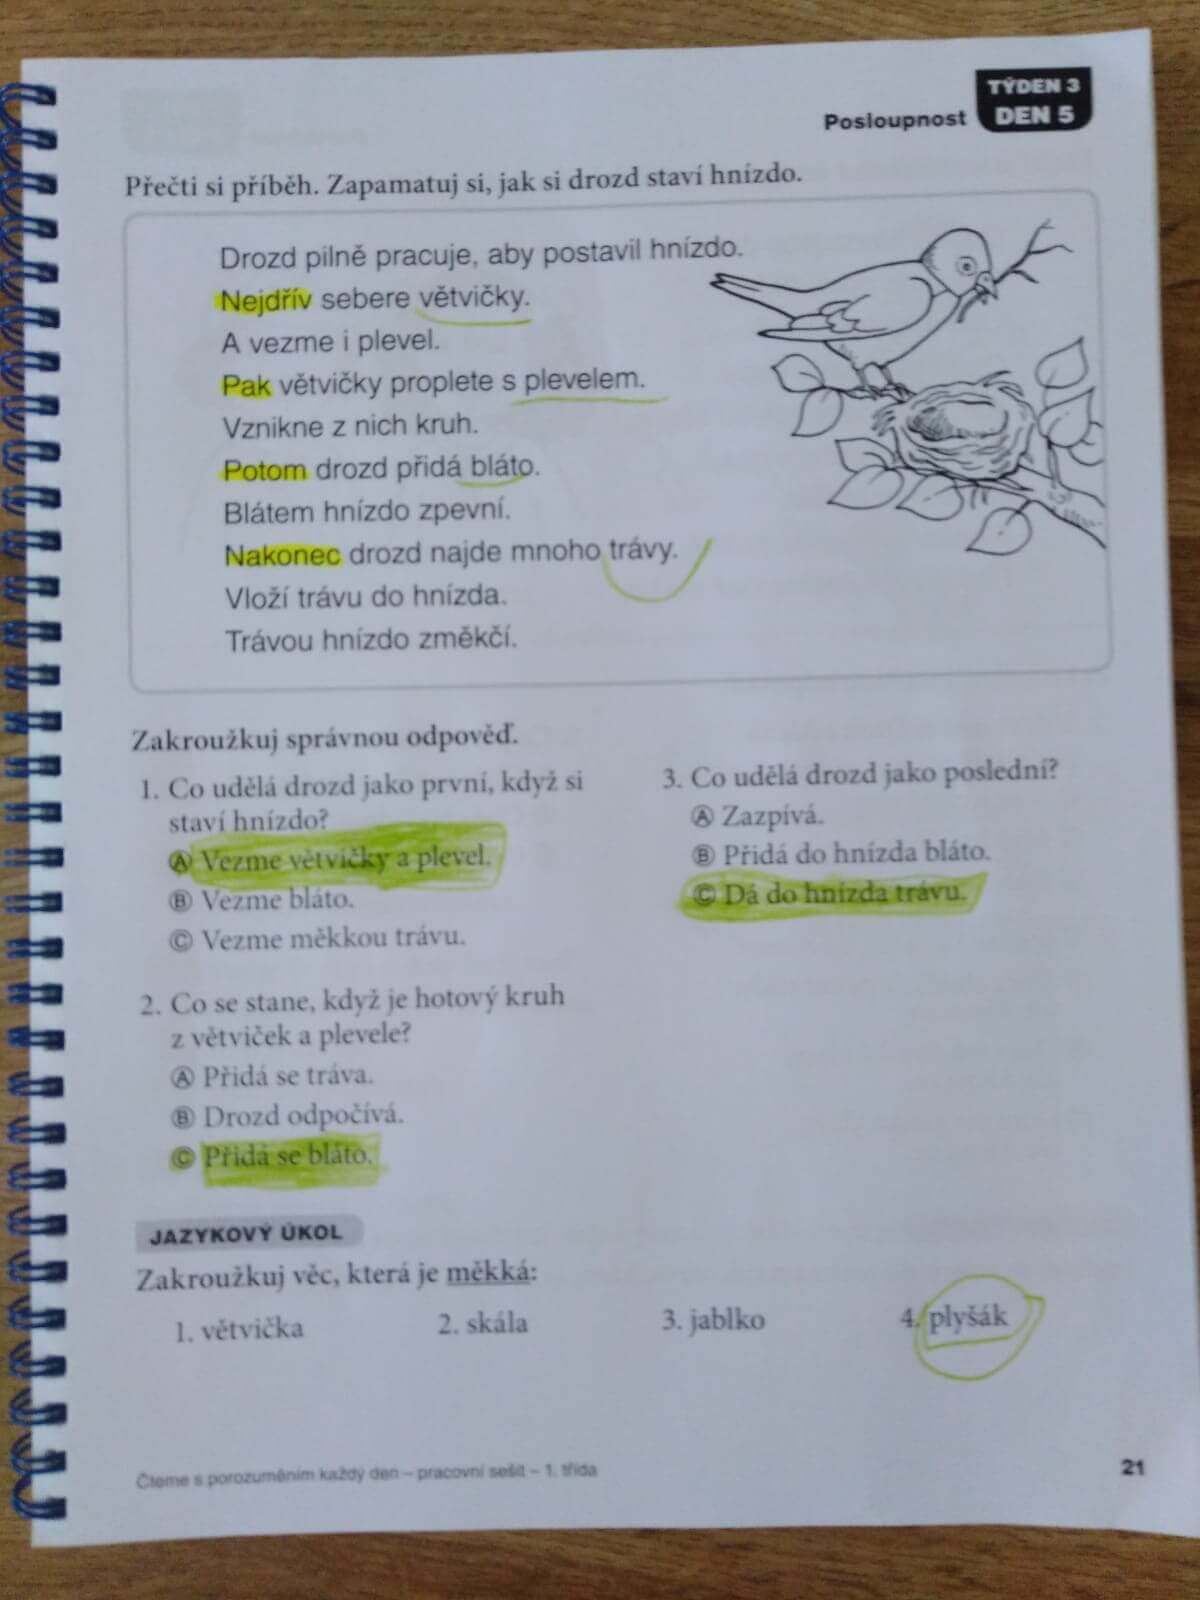 TÝDEN 3
Posloupnost DEN 5
Přečti si příběh. Zapamatuj si, jak si drozd staví hnízdo.
Drozd pilně pracuje, aby postavil hnízdo.
Nejdřív sebere větvičky.
A vezme i plevel.
Pak větvičky proplete s plevelem.
Vznikne z nich kruh.
Potom drozd přidá bláto.
Blátem hnízdo zpevní.
Nakonec drozd najde mnoho trávy.
Vloží trávu do hnízda.
Trávou hnízdo změkčí.
Zakroužkuj správnou odpověď.
1. Co udělá drozd jako první, když si
staví hnízdo?
A Vezme větvičky a plevel.
B Vezme bláto.
C Vezme měkkou trávu.
2. Co se stane, když je hotový kruh
z větviček a plevele?
A Přidá se tráva.
B Drozd odpočívá.
C Přidá se bláto.
3. Co udělá drozd jako poslední?
A Zazpívá.
B Přidá do hnízda bláto.
C Dá do hnízda trávu.
JAZYKOVÝ ÚKOL
Zakroužkuj věc, která je měkká:
1. větvička 2. skála 3. jablko 4. plyšák
Čteme s porozuměním každý den – pracovní sešit – 1. třída 21